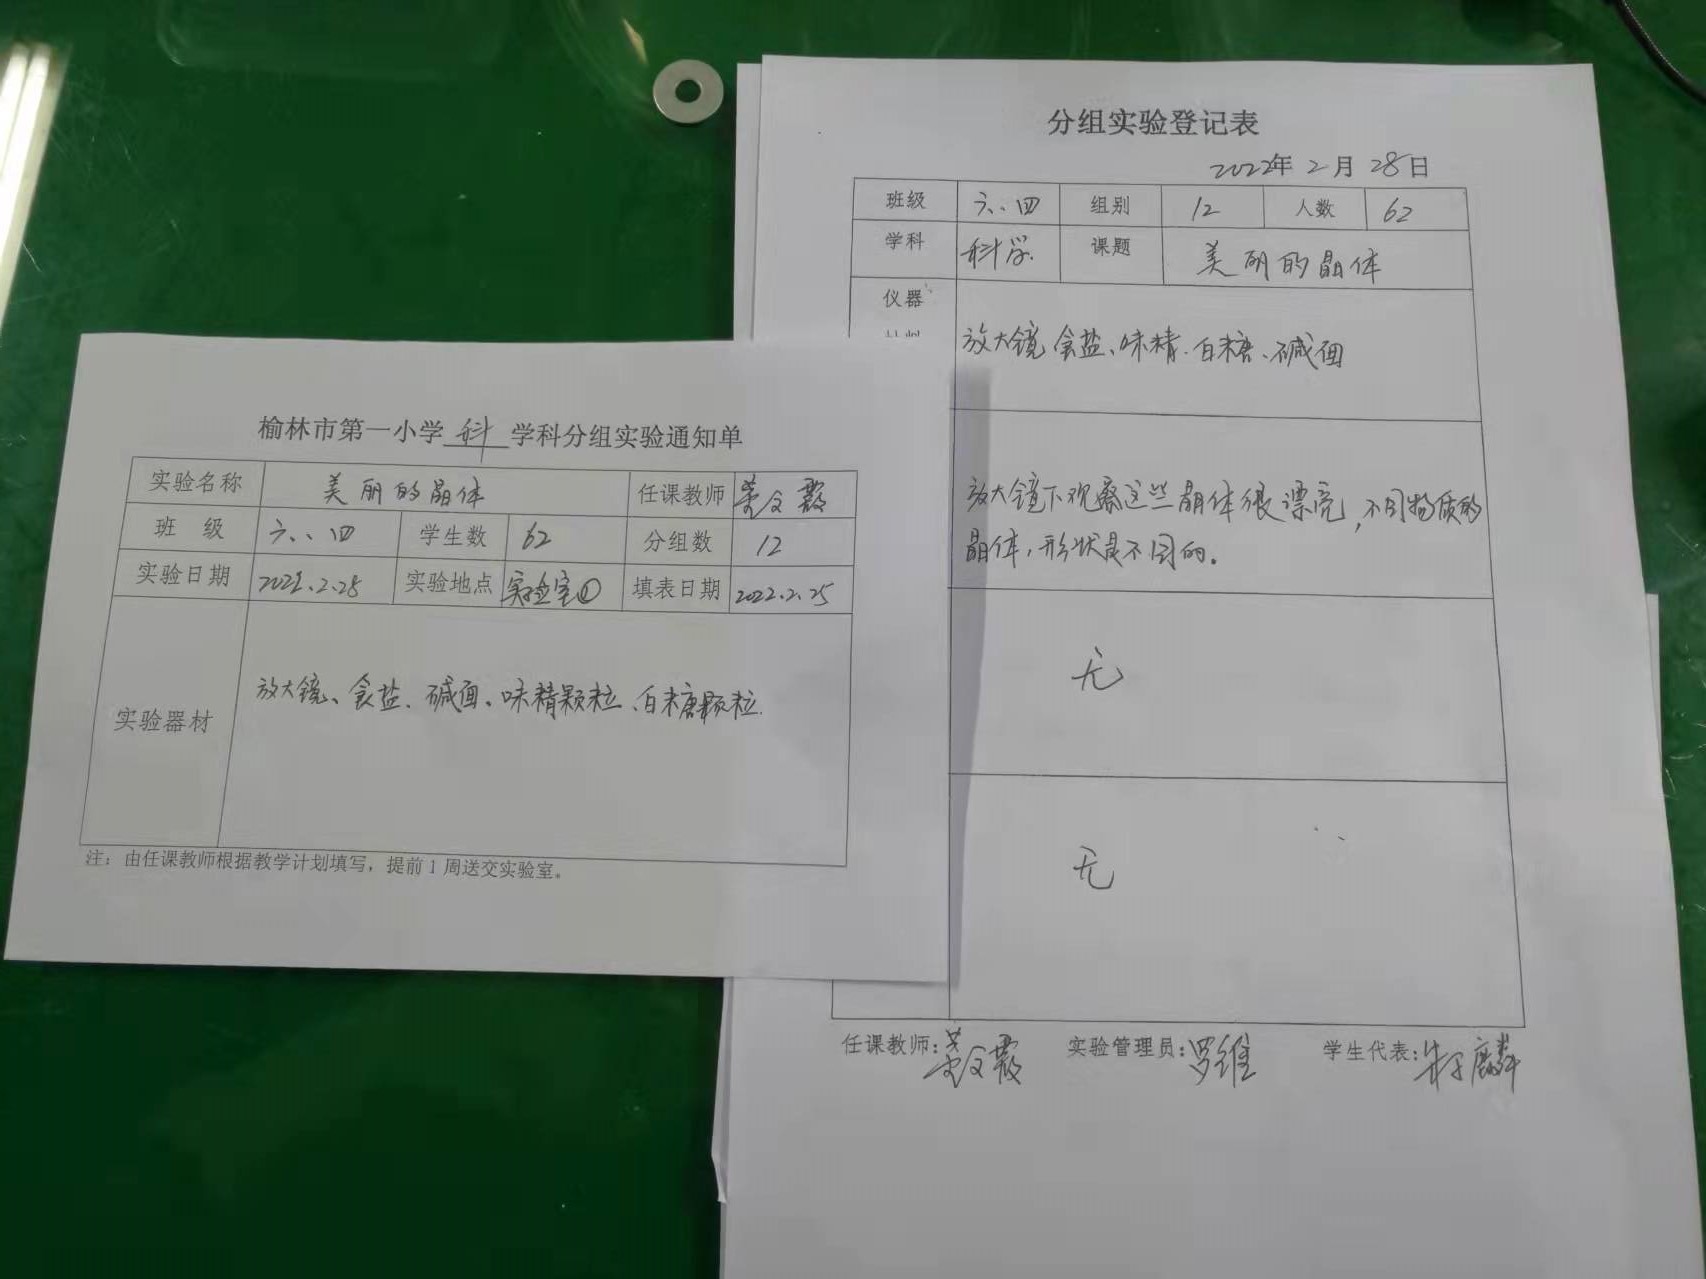 分组实验登记表
2022年 2月 28日
班级 六、四 组别 12 人数 62
学科 科学 课题 美丽的晶体
仪器
放大镜 食盐、味精、白糖、碱面
放大镜下观察这些晶体很漂亮，不同物质的
晶体，形状是不同的。
无
无
任课教师: 实验管理员:罗维 学生代表:
榆林市第一小学 科 学科分组实验通知单
实验名称 美丽的晶体 任课教师
班 级 六、四 学生数 62 分组数 12
实验日期 2022.2.28 实验地点 实验室① 填表日期 2022.2.25
实验器材 放大镜、食盐、碱面、味精颗粒、白糖颗粒.
注：由任课教师根据教学计划填写，提前1周送交实验室。